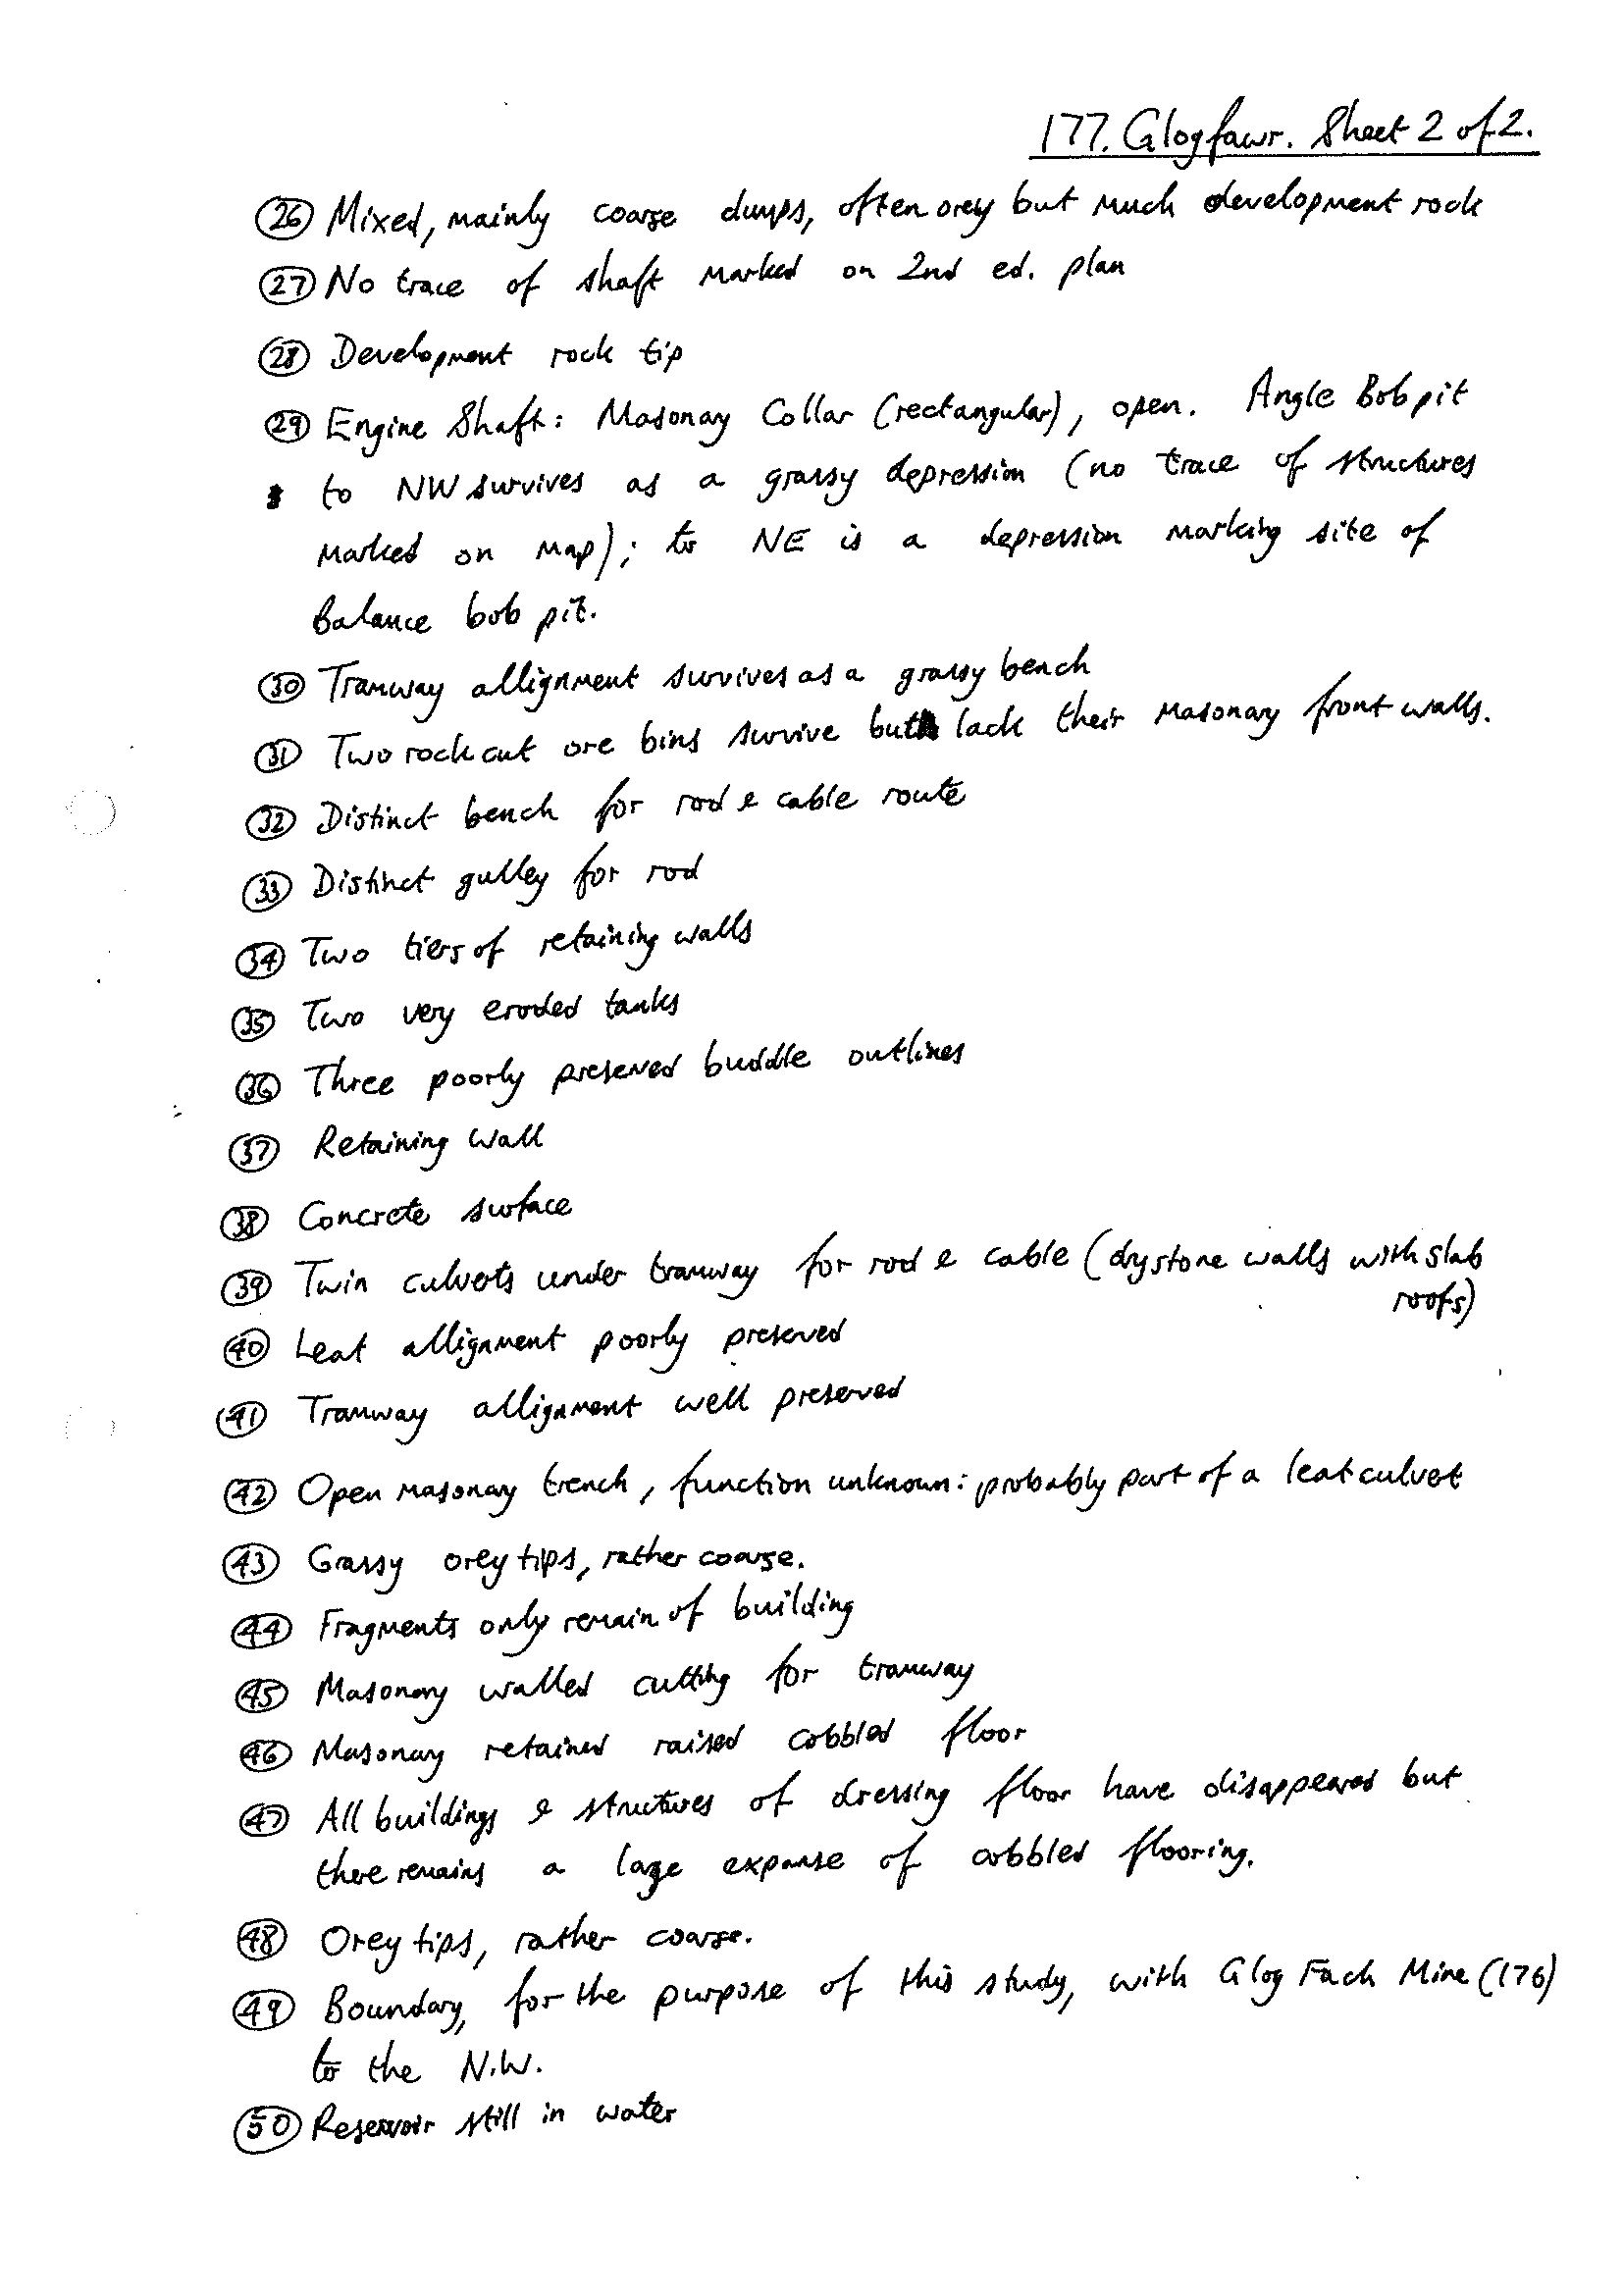 177. Glogfawr. Sheet 2 of 2.
26 Mixed, mainly coarse dumps, often orey but much development rock
27 No trace of shaft marked on 2nd ed. plan
28 Development rock tip
29 Engine Shaft: Masonay Collar (rectangular), open. Angle Bob pit
to NW survives as a grassy depression (no trace of structures
marked on map); to NE is a depression marking site of
Balance bob pit.
30 Tramway allignment survives as a grassy bench
31 Two rock cut ore bins survive but lack their masonay front walls.
32 Distinct bench for rod & cable route
33 Distinct gulley for rod
34 Two tiers of retaining walls
35 Two very eroded tanks
36 Three poorly preserved buddle outlines
37 Retaining wall
38 Concrete surface
39 Twin culverts under tramway for rod & cable (drystone walls with slab
roofs)
40 Leat allignment poorly preserved
41 Tramway allignment well preserved
42 Open masonay trench, function unknown: probably part of a leat culvet
43 Grassy orey tips, rather coarse.
44 Fragments only remain of building
45 Masonay walled cutting for tramway
46 Masonay retained raised cobbled floor
47 All buildings & structures of dressing floor have disappeared but
there remains a large expanse of cobbled flooring.
48 Orey tips, rather coarse.
49 Boundary, for the purpose of this study, with Glog Fach Mine (176)
to the N.W.
50 Reservoir still in water